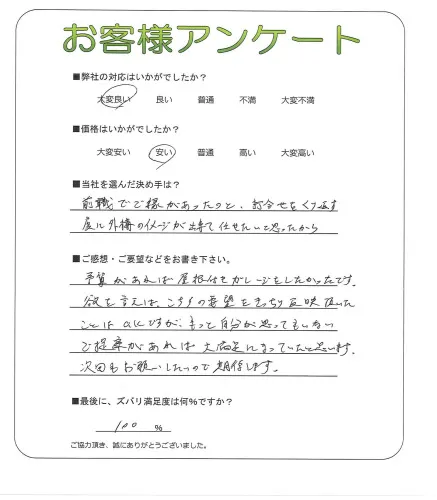 お客様アンケート
■弊社の対応はいかがでしたか?
大変良い 良い 普通 不満 大変不満
■価格はいかがでしたか?
大変安い 安い 普通 高い 大変高い
■当社を選んだ決め手は?
前職でご縁があったのと、打合せをくり返す
度に外構のイメージが出来て任せたいと思ったから
■ご感想・ご要望などをお書き下さい。
予算があれば屋根付きガレージをしたかったです。
欲を言えば、こちらの要望をきっちり反映頂いた
ことはOKですが、もっと自分が思ってもいない
ご提案があれば大満足になっていたと思います。
次回もお願いしたいので期待します。
■最後に、ズバリ満足度は何%ですか?
100 %
ご協力頂き、誠にありがとうございました。